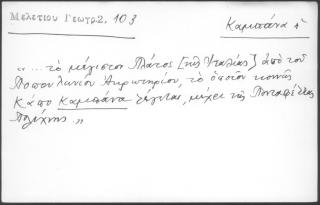 Μελετίου Γεωγρ. 103
Καμπάνα
"... τὸ μέγιστον Πλάτος [τῆς Ἰταλίας] ἀπὸ τοῦ
Ποπουλωνίου Ἀκρωτηρίου, τὸ ὁποῖον κοινῶς
Κάπο Καμπάνα λέγεται, μέχρι τῆς
Πολίχνης "